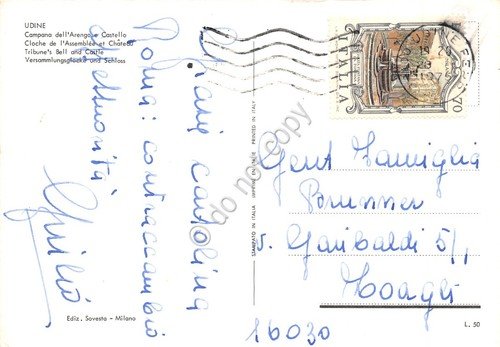 UDINE
Campana dell'Arengo e Castello
Cloche de l'Assemblée et Château
Tribune's Bell and Castle
Versammlungsglocke und Schloss
Grazie cartolina
Roma: contraccambio
Giulio
Ediz. Sovesta - Milano
STAMPATO IN ITALIA IMPRIMÉ EN ITALIE PRINTED IN ITALY
ITALIA
70
Gent Famiglia
Brunner
v. Garibaldi 5/1
Zoagli
16030
L. 50
do not copy